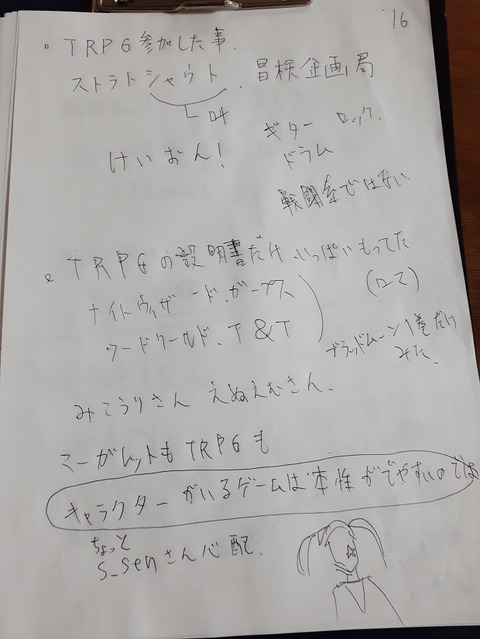 '16
。TRPG参加した事.
ストラトシャウト. 冒険企画局
叫
ギター ロック.
けいおん! ドラム
戦闘系ではない
。TRPGの説明書だけ、いっぱいもってた
ナイトウィザード.ガープス (ローズ)
ワードワールド、T&T
ブラッドムーン1巻だけ
みた、
みこうりさん えぬえむさん.
マーガレットもTRPGも
キャラクターがいるゲームは本性がでやすいのでは
ちょっと
s_senさん心配.